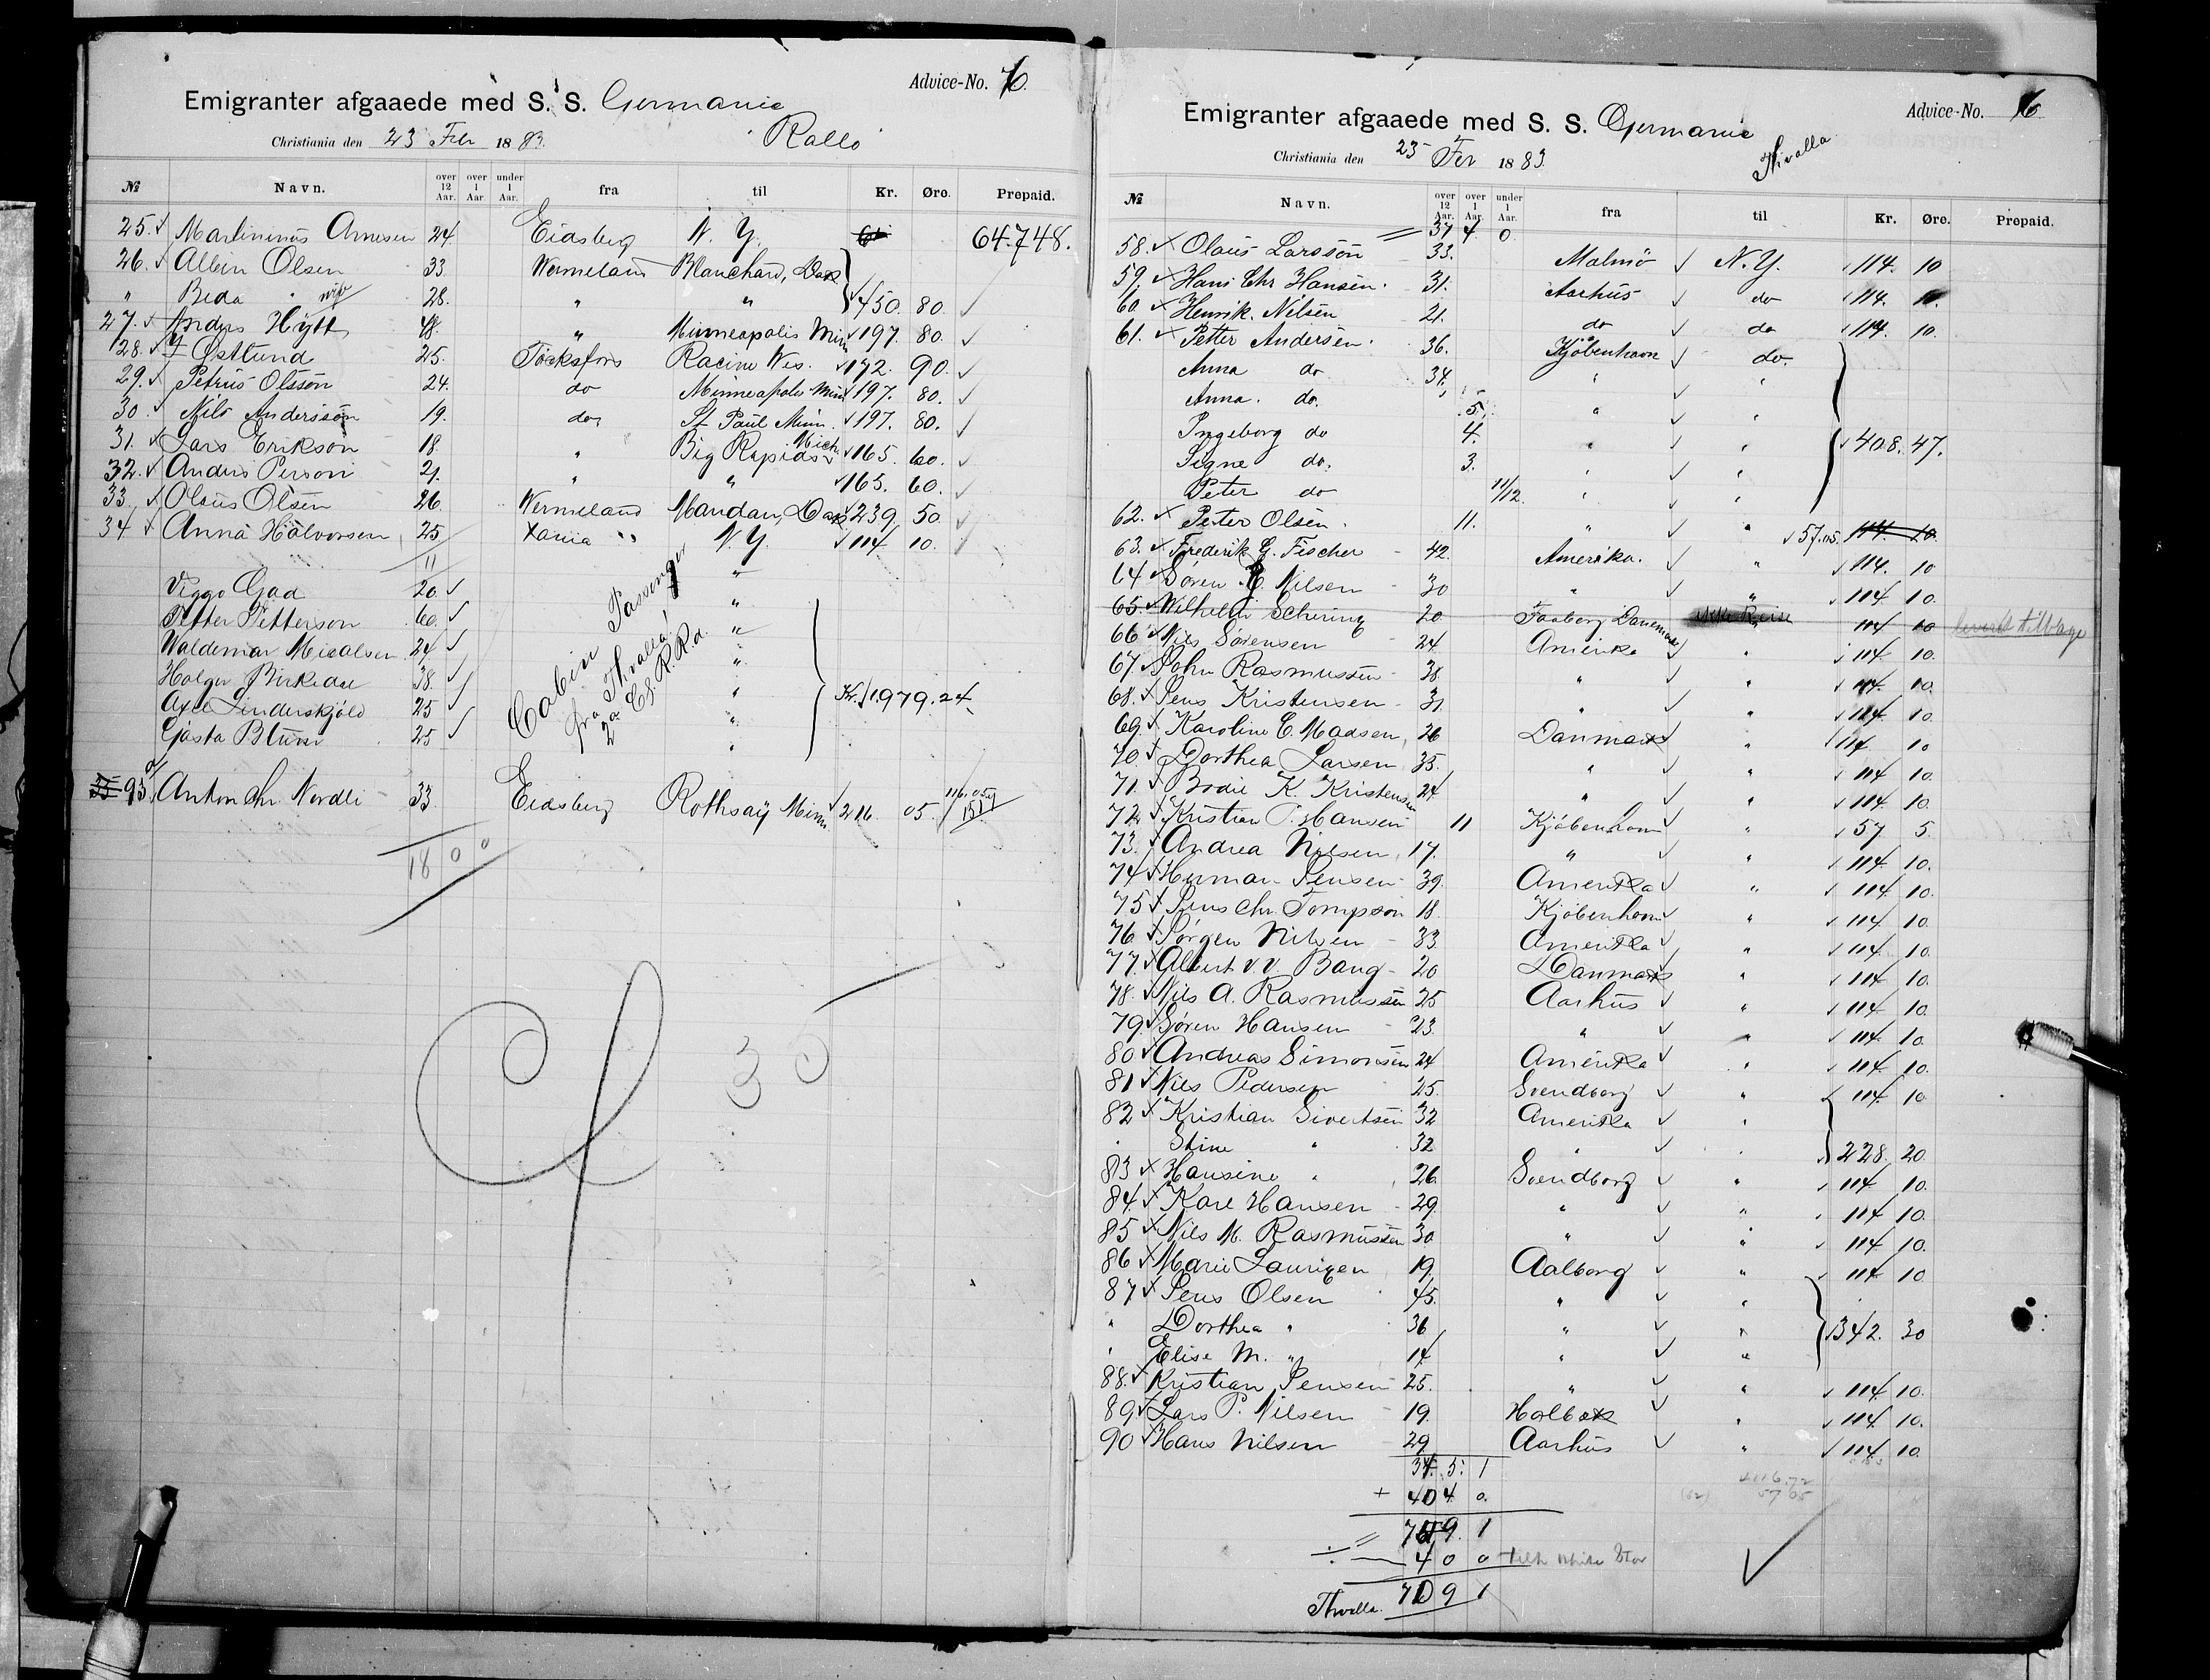 Advice-No. 6.
Emigranter afgaaede med S. S. Germania
Christiania den 23 Febr 1883. Rollo
№ Navn. over 12 Aar. over 1 Aar. under 1 Aar. fra til Kr. Øre. Prepaid.
25. Martininus Arnesen 24 Eidsberg N. Y. 64748.
26. Albin Olsen 33 Wermeland Blanchard, Dak
" Beda " wife 28. " " 450. 80
27. Anders Hytt 48. " Minneapolis Min 197. 80.
28. J Østlund 25. Töcksfors Racine Wis. 172. 90.
29. Petrus Olsson 24. do Minneapolis Min 197. 80.
30. Nils Andersson 19. do St Paul Minn. 197. 80.
31. Lars Erikson 18. " Big Rapids Mich 165. 60.
32. Anders Person 21. " " 165. 60.
33. Olaus Olsen 26. Wermeland Mandan, Dak 239. 50.
34 Anna Halvorsen 25 Xania N. Y. 114. 10.
11
Viggo Gad 20. "
Petter Petterson 60. "
Waldemar Micalsen 24 "
Holger Birkedal 38. "
Axel Linderskjöld 25 "
Gösta Blum 25 "
Cabin Passenger
fra Thvalla
Kr. 1979.24
35 93. Anton Chr. Nordli 33 Eidsberg Rothsay Minn. 216. 05.
18 0 0
Advice-No. 6
Emigranter afgaaede med S. S. Germania
Christiania den 23 Fer 1883. Thvalla
№ Navn. over 12 Aar. over 1 Aar. under 1 Aar. fra til Kr. Øre. Prepaid.
37 4 0
58. Olaus Larsson 33. Malmö N.Y. 114. 10
59. Hans Chr Hansen. 31. Aarhus do 114. 10.
60. Henrik. Nilsen 21. do do 114. 10.
61. Petter Andersen. 36. Kjöbenhavn do.
Anna do 34. " "
Anna. do. 5. " "
Ingeborg do 4. " " 408. 47.
Signe do. 3. " "
Peter do 11/12. " "
62. Peter Olsen. 11. " " 57.05. 114. 10.
63. Frederik G. Fischer 42. Amerika. " 114. 10
64 Søren P. Nilsen 30 " " 114. 10.
65. Wilhelm Schering 20 Faaborg Danemark ikke Reise 114 10 leveret tilbage
66 Nils Sørensen 24 Amerika " 114. 10.
67 John Rasmussen 38. " " 114. 10.
68. Jens Kristensen 31 " " 114. 10.
69. Karoline C. Madsen 26 Danmark " 114 10
70. Dorthea Larsen 35. " " 114 10.
71. Bodil K. Kristensen 24 " " 114 10.
72. Kristian P. Hansen 11 Kjöbenhavn " 57 5.
73. Andrea Nilsen 17. " " 114. 10.
74 Herman Jensen 39. Amerika " 114. 10.
75 Jens Chr. Tompson 18 Kjöbenhavn " 114. 10.
76 Jörgen Nilsen 33 Amerika " 114. 10.
77. Albert v.v. Bang 20 Danmark " 114 10.
78. Nils A. Rasmussen 25 Aarhus " 114 10.
79. Sören Hansen 23. " " 114 10.
80. Andreas Simonsen 24 Amerika " 114 10.
81 Nils Pedersen 25. Svendborg " 114 10
82 Kristian Sivertsen 32 Amerika "
" Stine " 32 " " 228. 20.
83 Hansine " 26 Svendborg " 114 10.
84. Karl Hansen 29. " " 114 10.
85 Nils M. Rasmussen 30 " " 114 10.
86 Marie Lauritzen 19 Aalborg " 114 10
87 Jens Olsen 45. " "
" Dorthea " 36 " " 342. 30
" Elise M. " 14 " "
88. Kristian Jensen 25. " " 114. 10.
89 Lars P. Nilsen 19. Holbæk " 114. 10.
90 Hans Nilsen 29 Aarhus " 114 10.
34. 5. 1
+ 40 4 0.
74 9. 1
÷ 4 0 0 White Star
Thvalla. 70 9 1